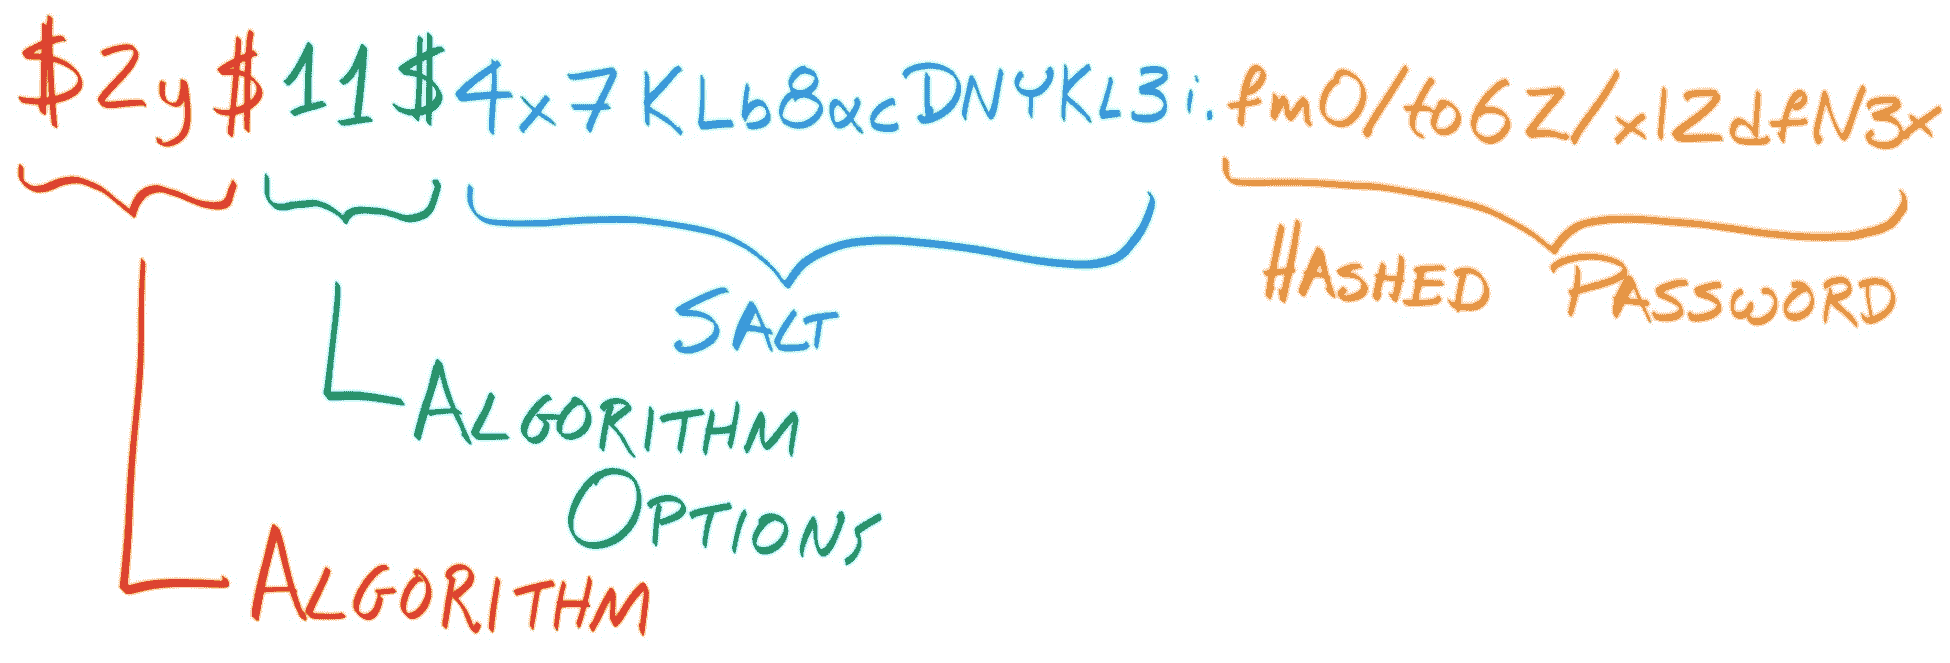 $2y$11$4x7KLb8acDNYKL3i.fmO/to6Z/xlZdfN3x
SALT
HASHED PASSWORD
ALGORITHM
OPTIONS
ALGORITHM